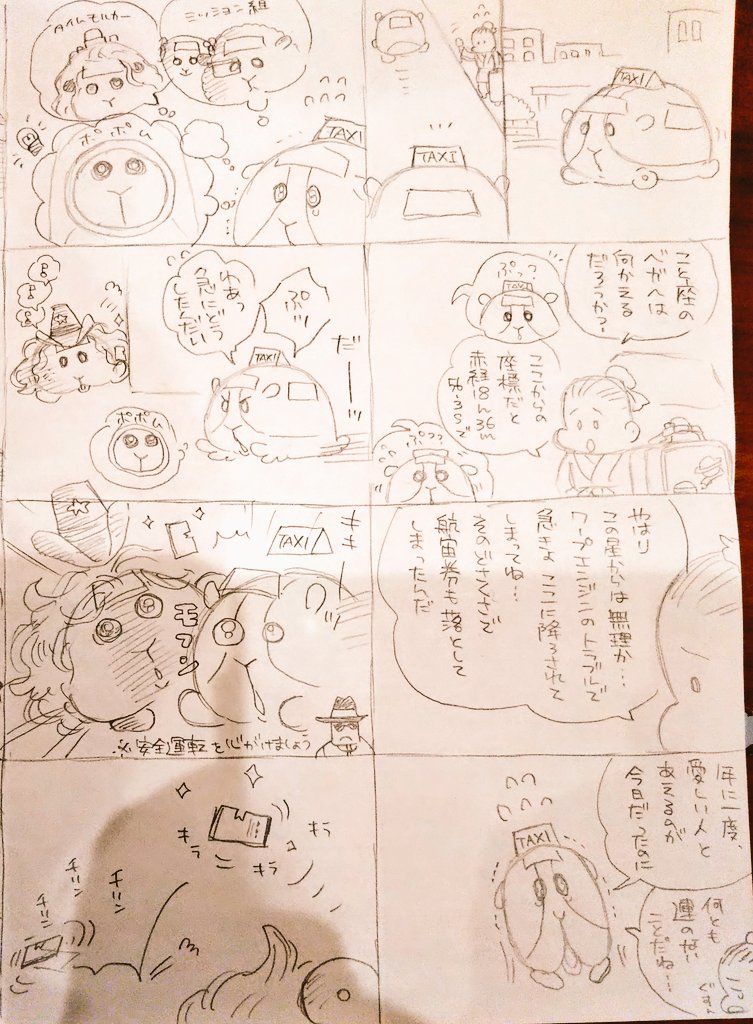 TAXI
TAXI
こと座の
ベガへは
向かえる
だろうか?
ぷっっ
TAXI
ここからの
座標だと
赤経18h36m
56.3sで
ぷっっ
やはり
この星からは無理か…
ワープエンジンのトラブルで
急きょここに降ろされて
しまってね…
そのどさくさで
航宙券も落として
しまったんだ
年に一度、
愛しい人と
あえるのが
今日だったのに
TAXI
何とも
運のない
ことだね…
ぐすん
ミッション組
タイムモルカー
ポポム
TAXI
ぷいっ
わあっ
急にどう
したんだい
TAXI
だーーッ
ポポム
キキ
TAXI
ワッ
モフン
※安全運転を心がけましょう
キラ
キラ
キラ
チリン
チリン
チリン